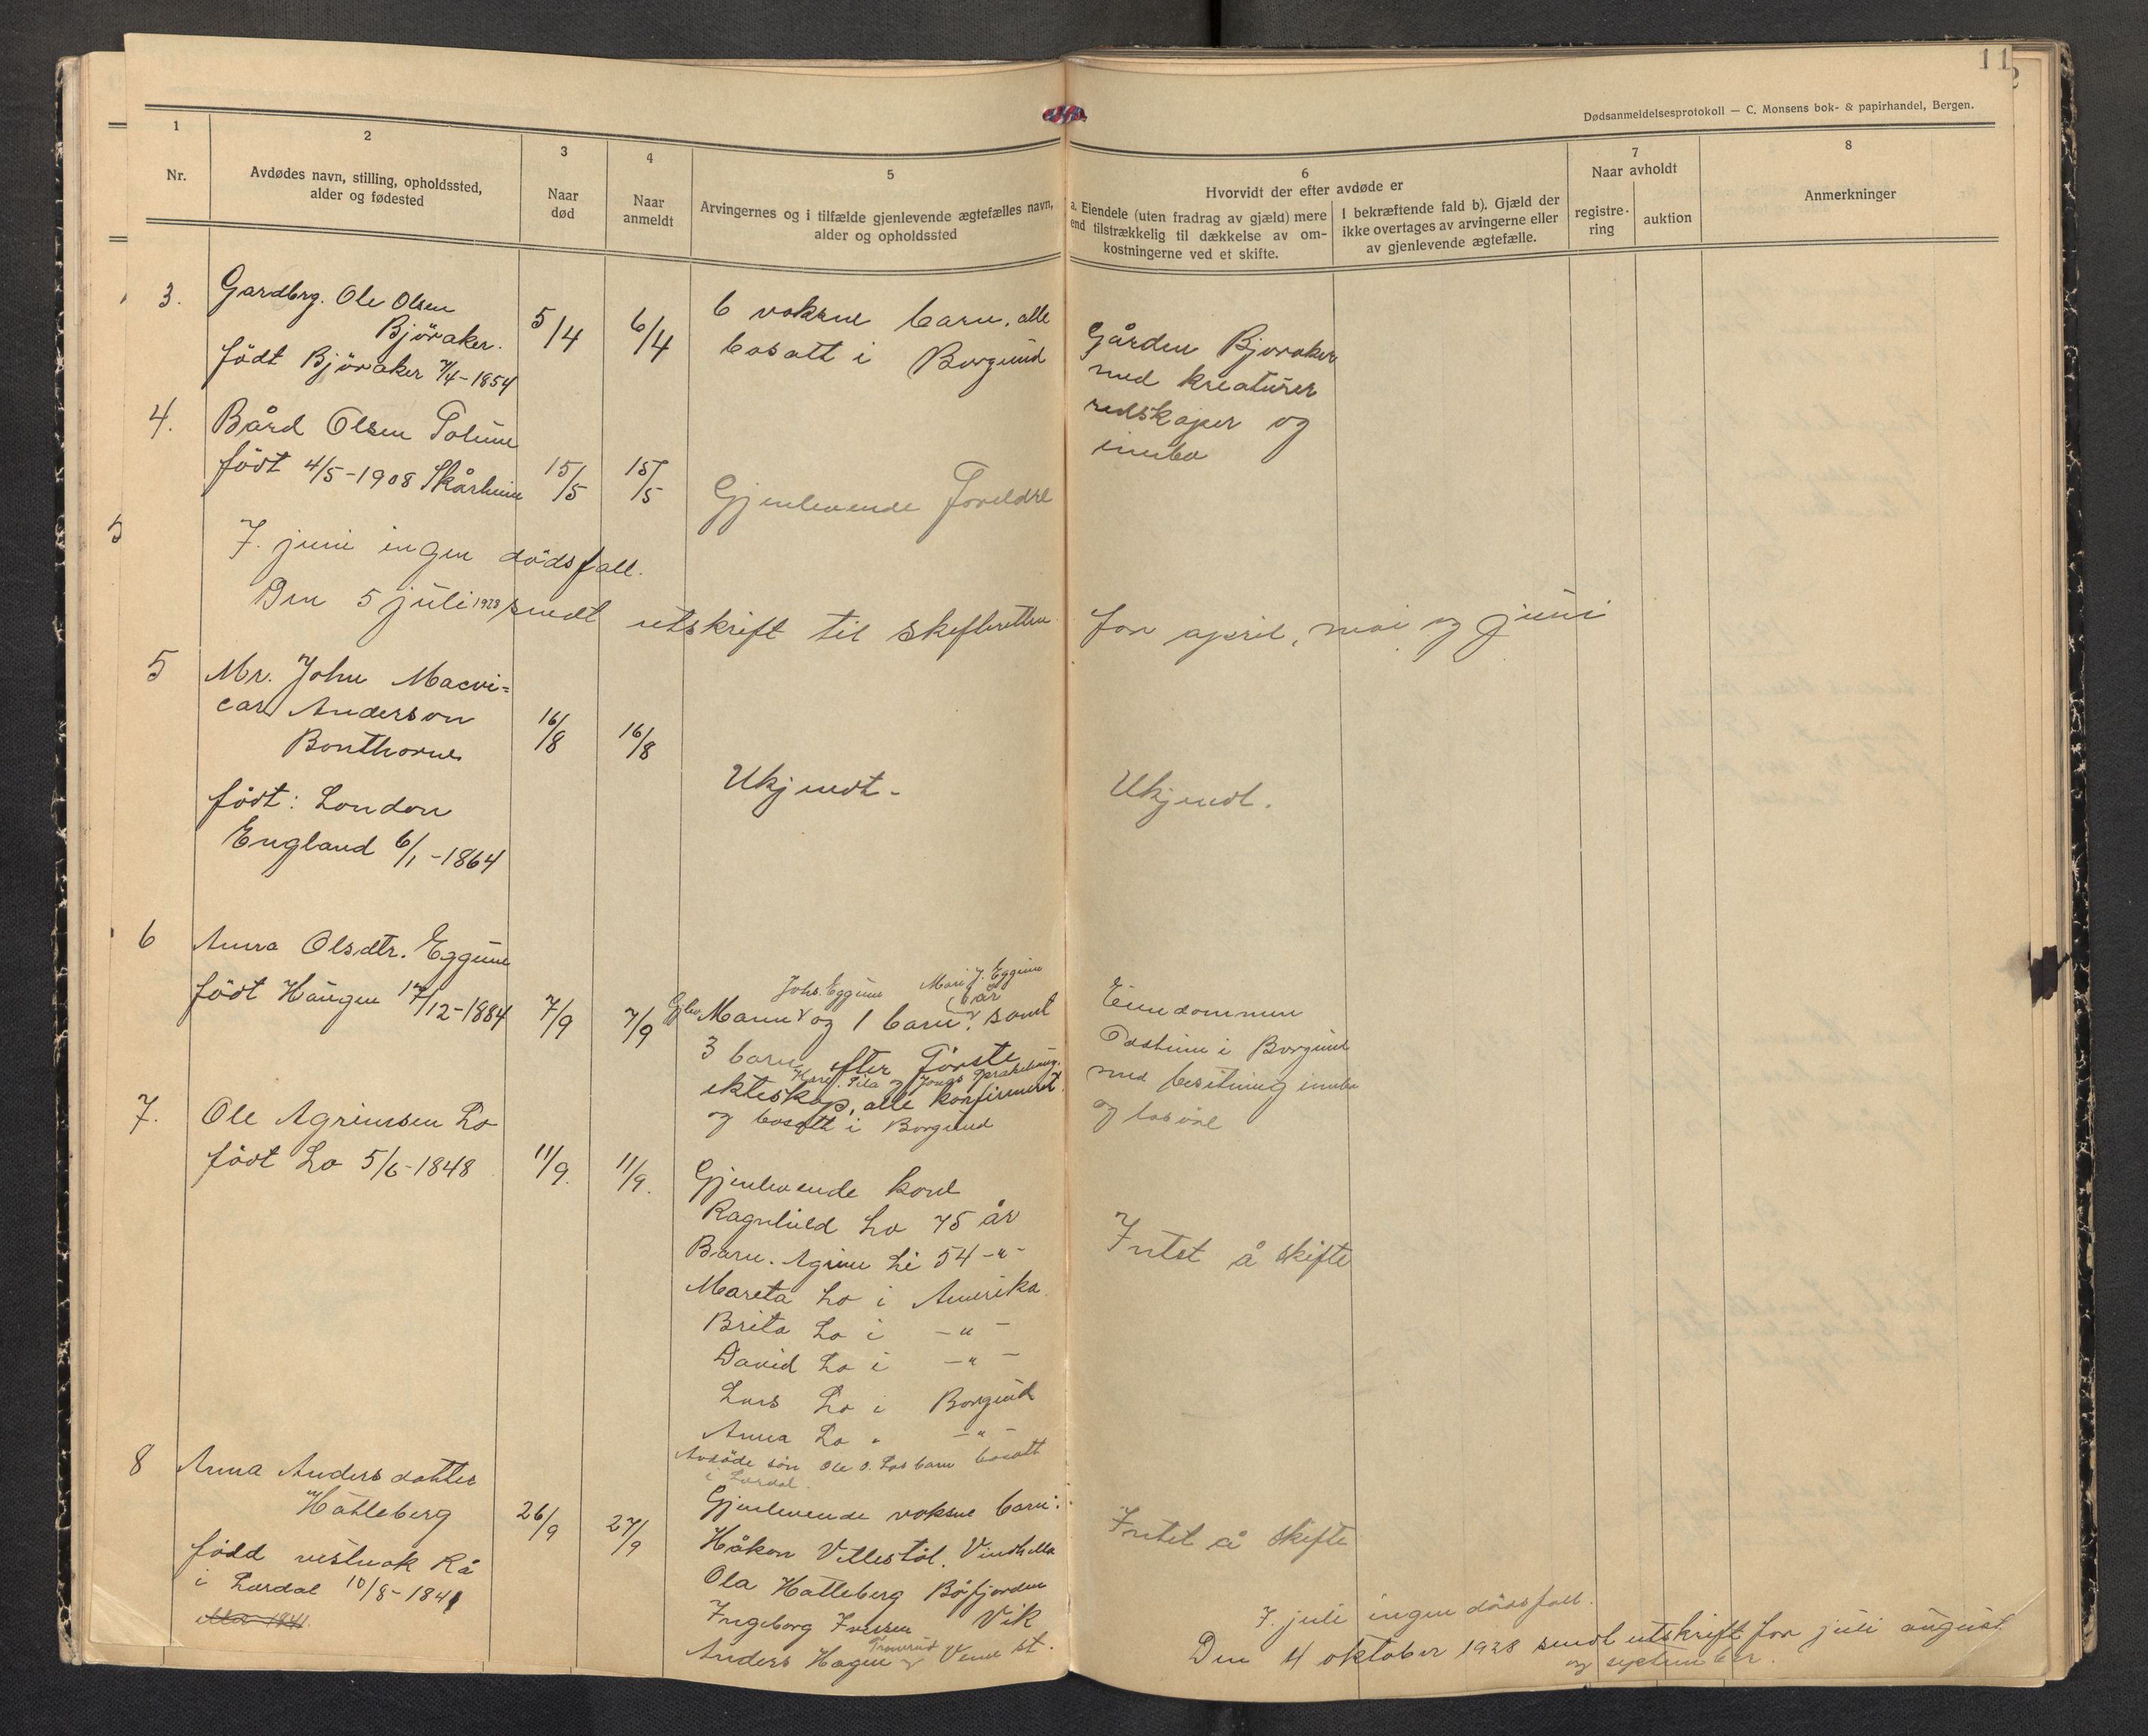 11
Dødsanmeldelsesprotokoll — C. Monsens bok- & papirhandel, Bergen.
1
Nr.
2
Avdødes navn, stilling, opholdssted,
alder og fødested
3
Naar
død
4
Naar
anmeldt
5
Arvingernes og i tilfælde gjenlevende ægtefælles navn,
alder og opholdssted
6
Hvorvidt der efter avdøde er
a. Eiendele (uten fradrag av gjæld) mere
end tilstrækkelig til dækkelse av om-
kostningerne ved et skifte.
I bekræftende fald b). Gjæld der
ikke overtages av arvingerne eller
av gjenlevende ægtefælle.
7
Naar avholdt
registre-
ring
auktion
8
Anmerkninger
3. Gardbrg. Ole Olsen
Björaker.
födt Björaker 7/4-1854
5/4
6/4
6 voksne barn, alle
bosatt i Borgund
Gården Bjoraker
med kreaturer
redskaper og
innbo
4. Bård Olsen
födt 4/5-1908 Skårheim
15/5
15/5
Gjenlevende Foreldre
5
7. juni ingen dödsfall.
Den 5 juli 1928 sendt utskrift til skifteretten for april, mai og juni
5 Mr. John Macvi=
car Anderson
Bonthorne
födt: London
England 6/1-1864
16/8
16/8
Ukjendt-
Ukjendt.
6 Anna Olsdtr. Eggum
födt Haugen 17/12-1884
7/9
7/9
Johs. Eggum Mari J. Eggum
6 år
Gjlev. Mann og 1 barn, samt
3 barn efter Förste
ekteskap, alle konfirmert
og bosatt i Borgund
Eiendommen
i Borgund
med besetning innbo
og lösöre
7. Ole Agrimsen Lo
födt Lo 5/6-1848
11/9.
11/9.
Gjenlevende kone
Ragnhild Lo 75 år
Barn. Agrim Li 54 -"-
Mareta Lo i Amerika
Brita Lo i -"-
David Lo i -"-
Lars Lo i Borgund
Anna Lo " -"-
Avdöde sön Ole O. Los barn bosatt
i Lærdal.
Intet å skifte
8 Anna Andersdatter
Hatleberg
född Rå
i Lærdal 10/8-1841
26/9
27/9
Gjenlevende voksne barn:
Håkon Vellestöl. Vindhella
Ola Hatleberg Böfjorden
Ingeborg Iversen Vik
Anders Hagen
Intet å skifte
7. juli ingen dödsfall.
Den 4 oktober 1928 sendt utskrift for juli august
og september.